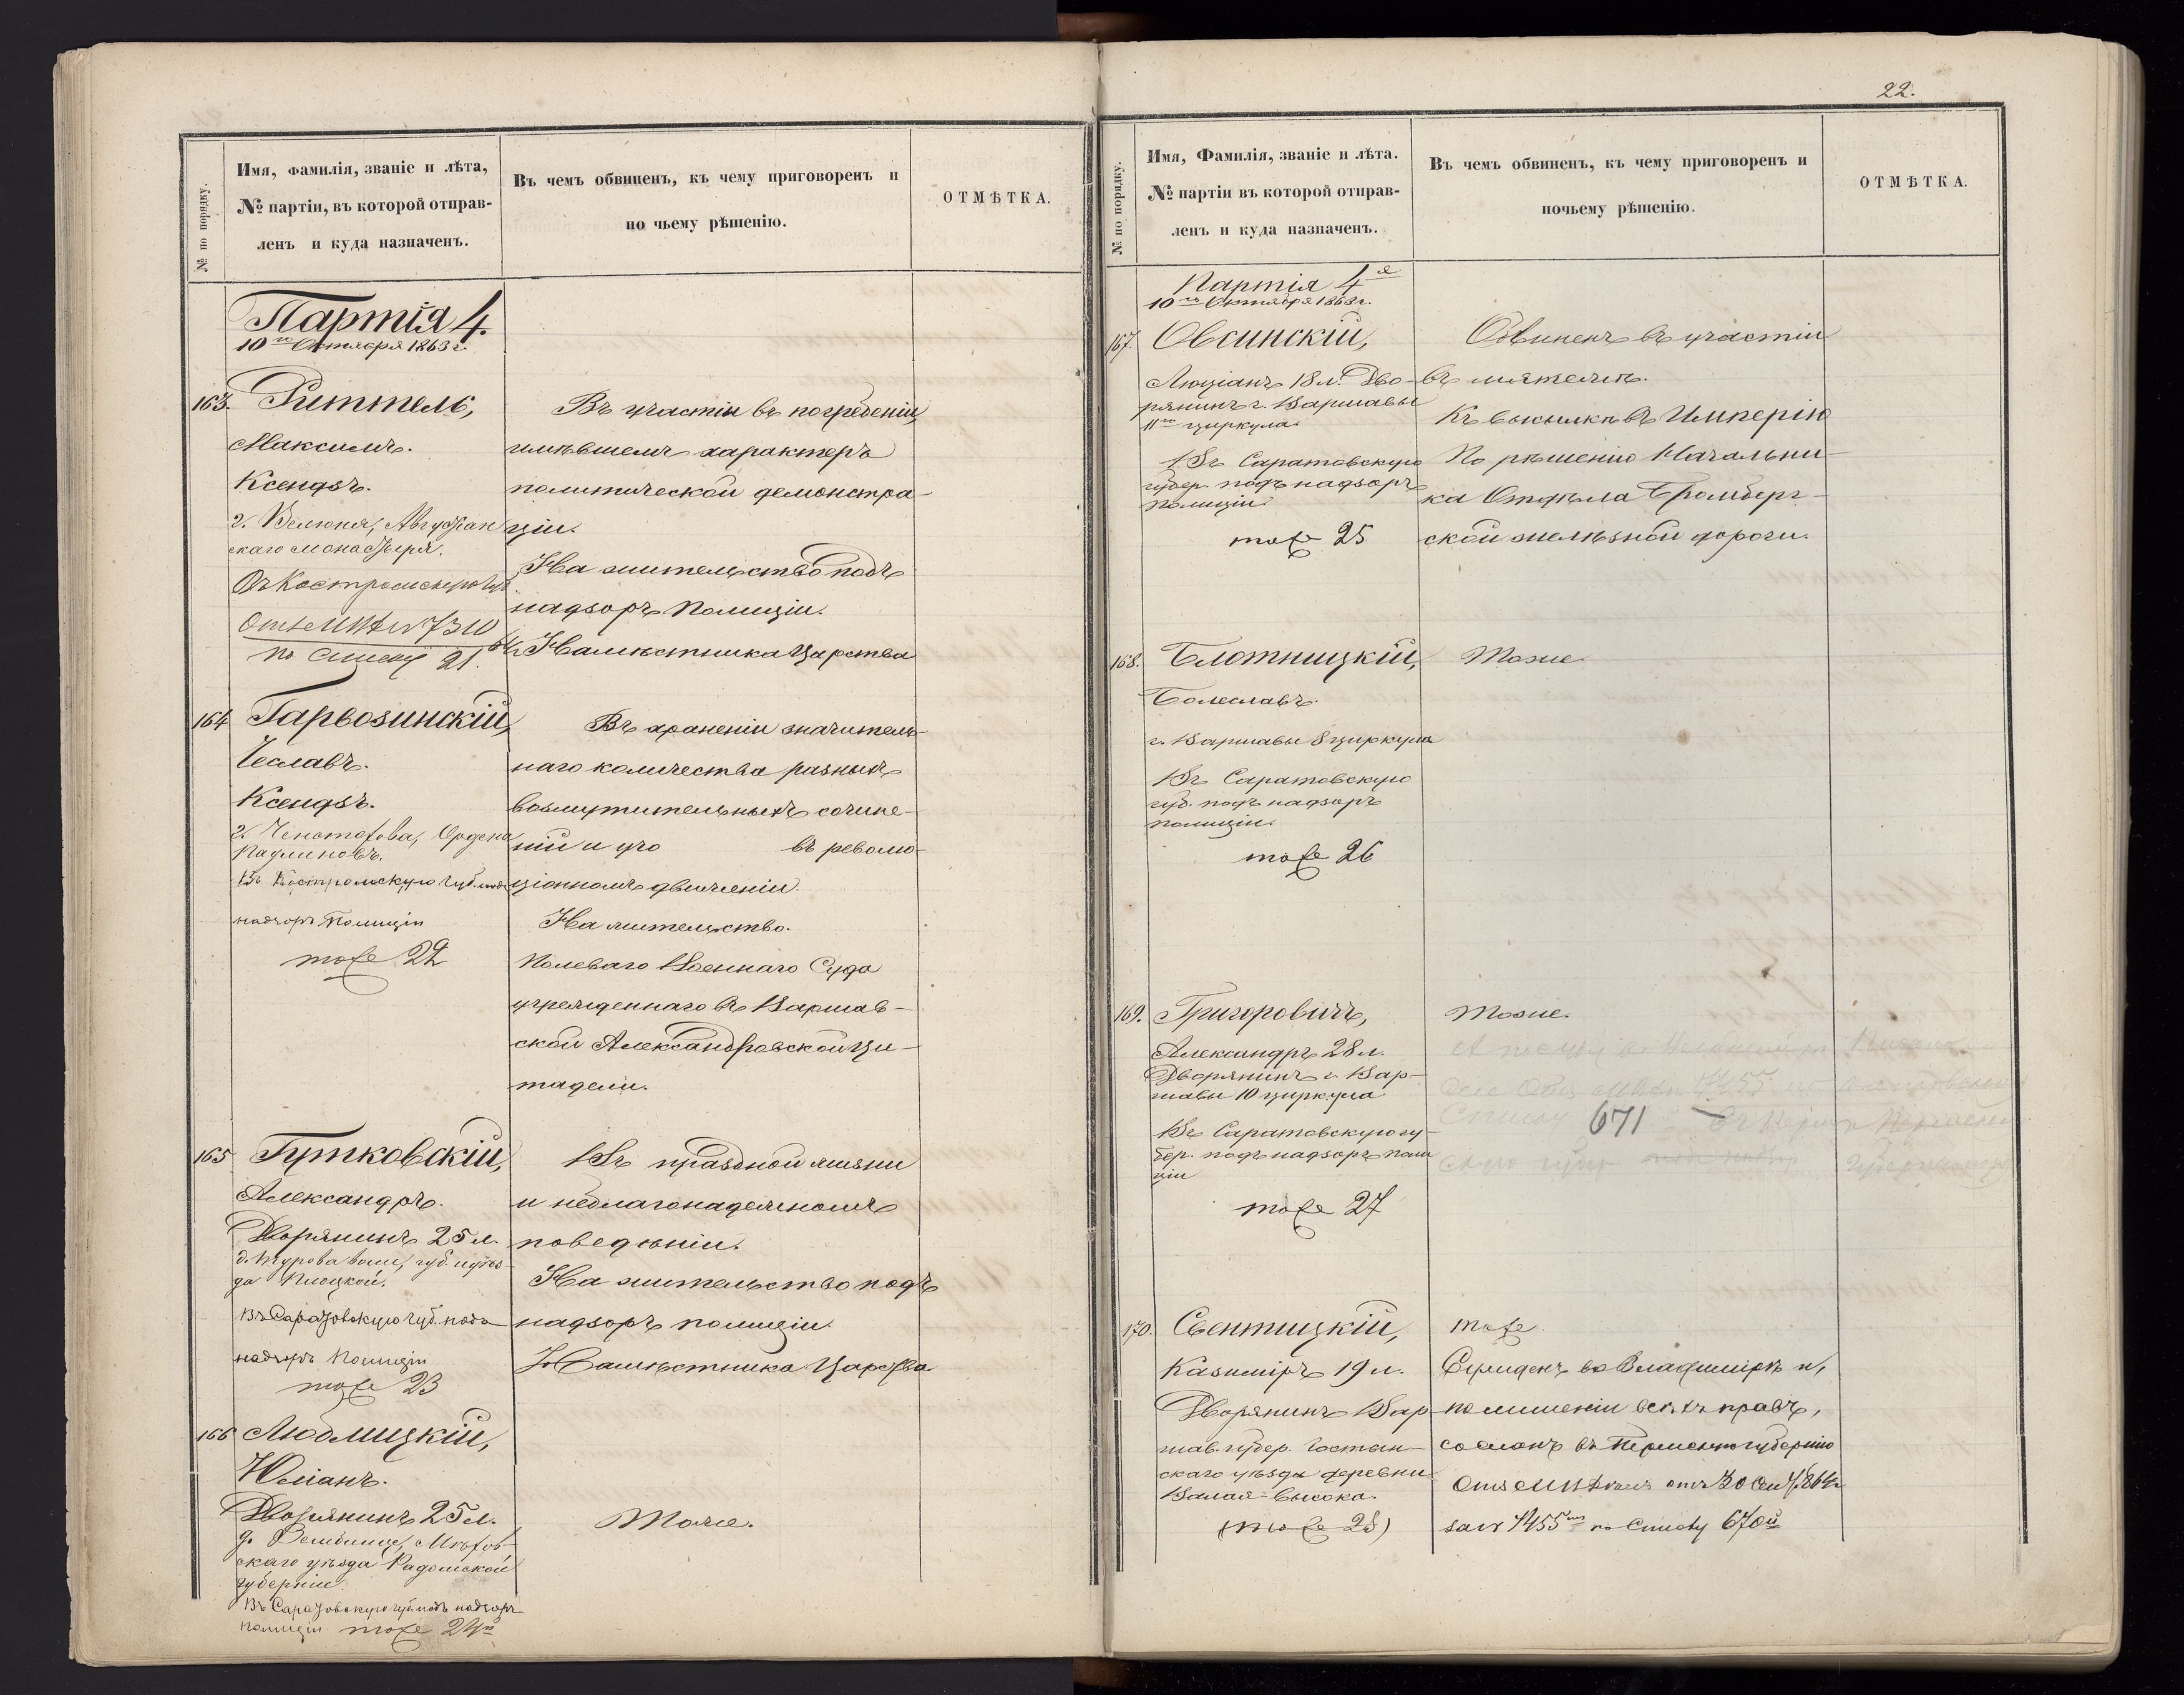 № по порядку.
Имя, фамилія, званіе и лѣта,
№ партіи, въ которой отправ-
ленъ и куда назначенъ.
Въ чемъ обвиненъ, къ чему приговоренъ и
по чьему рѣшенію.
ОТМѢТКА.
Партія 4.
10го Октября 1863 г.
163. Риттель,
Максимъ.
Ксендзъ.
г. Велюня, Августіан
скаго монастыря.
Въ Костромскую губ
Отъ МВД № 7310
по списку 21.
Въ участіи въ погребеніи,
имѣвшемъ характеръ
политической демонстра-
ціи.
На жительство подъ
надзоръ Полиціи.
Намѣстника Царства
164 Гарвозинскій,
Чеславъ.
Ксендзъ.
г. Ченстохова, Ордена
Паулиновъ.
Въ Костромскую губ. подъ
надзоръ Полиціи
тоже 22
Въ храненіи значитель-
наго количества разныхъ
возмутительныхъ сочине-
ній и уча въ револю-
ціонномъ движеніи.
На жительство.
Полеваго Военнаго Суда
учрежденнаго въ Варшав-
ской Александровской Ци-
тадели.
165 Гутковскій,
Александръ.
Дворянинъ 25 л.
губ. и уѣз-
да Плоцкой.
Въ Саратовскую губ. подъ
надзоръ Полиціи
тоже 23
Въ праздной жизни
и неблагонадежномъ
поведѣніи.
На жительство подъ
надзоръ полиціи.
Намѣстника Царства
166 Любмицкій,
Юліанъ.
Дворянинъ 25 л.
скаго уѣзда Радомской
губерніи.
Въ Саратовскую губ. подъ надзоръ
полиціи тоже 24й
Тоже.
22.
№ по порядку.
Имя, Фамилія, званіе и лѣта.
№ партіи въ которой отправ-
ленъ и куда назначенъ.
Въ чемъ обвиненъ, къ чему приговоренъ и
почьему рѣшенію.
ОТМѢТКА.
Партія 4я
10го Октября 1863 г.
167. Овсинскій,
Люціанъ 18 л. Дво-
рянинъ г. Варшавы
11го циркула.
Въ Саратовскую
губер. подъ надзоръ
полиціи.
тоже 25
Обвиненъ въ участіи
въ мятежѣ.
Къ высылкѣ въ Имперію
По рѣшенію Начальни-
ка Отдѣла Бромберг-
ской желѣзной дороги.
168. Блотницкій,
Болеславъ.
г. Варшавы 8 циркула
Въ Саратовскую
губ. подъ надзоръ
полиціи.
тоже 26
Тоже.
169. Григоровичъ,
Александръ 28 л.
Дворянинъ г. Вар-
шавы 10 циркула
Въ Саратовскую гу-
бер. подъ надзоръ поли
ціи
тоже 27
Тоже.
671
170. Свентицкій,
Казиміръ 19 л.
Дворянинъ Вар-
шав. губер. Гостын-
скаго уѣзда деревни
Валая-Высока.
(тоже 28)
тоже
Сужденъ во Владимірѣ и,
по лишеніи всѣхъ правъ,
сосланъ въ Пермскую губернію
за № 7455 по списку 670й